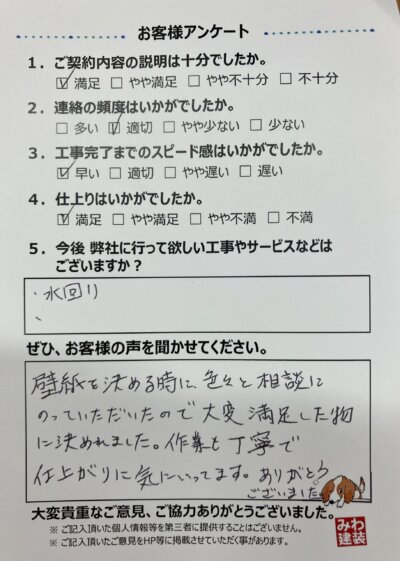 お客様アンケート
1. ご契約内容の説明は十分でしたか。
☑ 満足 □ やや満足 □ やや不十分 □ 不十分
2. 連絡の頻度はいかがでしたか。
□ 多い ☑ 適切 □ やや少ない □ 少ない
3. 工事完了までのスピード感はいかがでしたか。
☑ 早い □ 適切 □ やや遅い □ 遅い
4. 仕上りはいかがでしたか。
☑ 満足 □ やや満足 □ やや不満 □ 不満
5. 今後 弊社に行って欲しい工事やサービスなどは
ございますか？
・水回り
、
ぜひ、お客様の声を聞かせてください。
壁紙を決める時に、色々と相談に
のっていただいたので大変満足した物
に決めれました。作業も丁寧で
仕上がりに気にいってます。ありがとう
ございました。
大変貴重なご意見、ご協力ありがとうございました。
※ ご記入頂いた個人情報等を第三者に提供することはございません。
※ ご記入頂いたご意見をHP等に掲載させていただく事があります。
みわ
建装